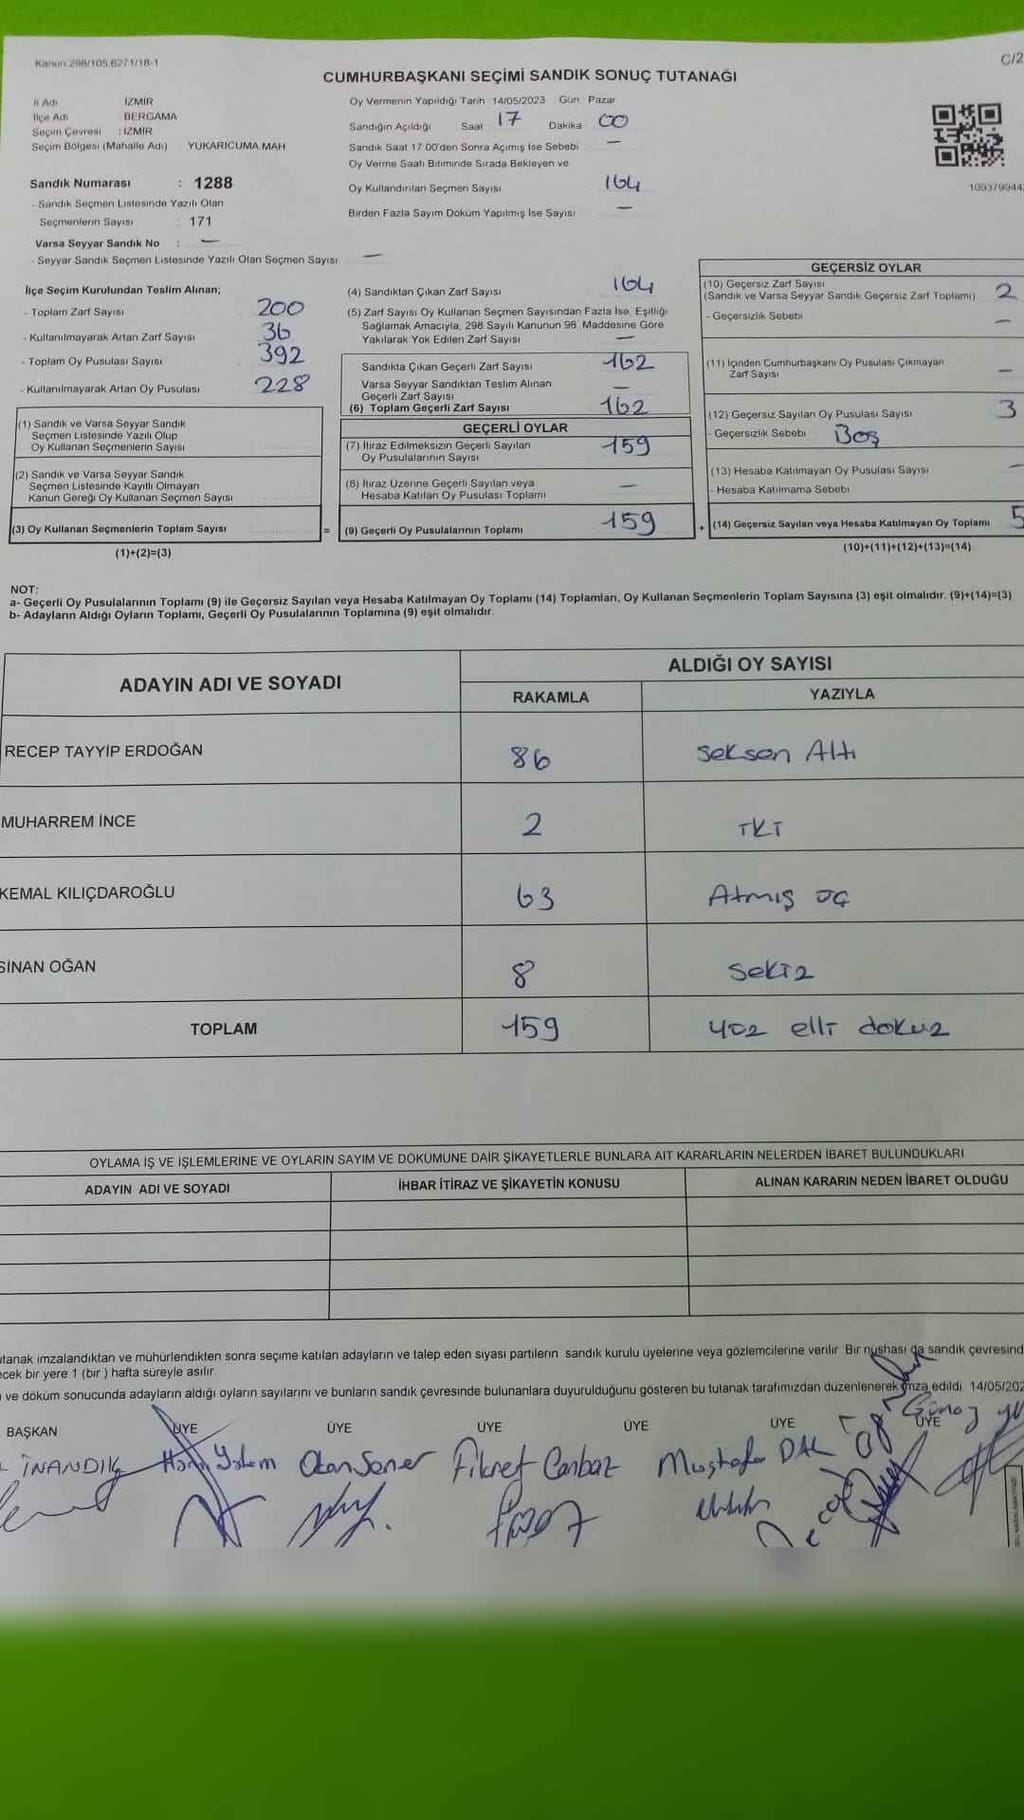 Kanun 298/105,6271/18-1
C/2
CUMHURBAŞKANI SEÇİMİ SANDIK SONUÇ TUTANAĞI
İl Adı İZMİR
İlçe Adı BERGAMA
Seçim Çevresi : İZMİR
Seçim Bölgesi (Mahalle Adı) YUKARICUMA MAH
Sandık Numarası : 1288
- Sandık Seçmen Listesinde Yazılı Olan
Seçmenlerin Sayısı : 171
Varsa Seyyar Sandık No : —
- Seyyar Sandık Seçmen Listesinde Yazılı Olan Seçmen Sayısı —
Oy Vermenin Yapıldığı Tarih 14/05/2023 Gün : Pazar
Sandığın Açıldığı Saat 17 Dakika 00
Sandık Saat 17 00'den Sonra Açılmış İse Sebebi —
Oy Verme Saati Bitiminde Sırada Bekleyen ve
Oy Kullandırılan Seçmen Sayısı 164
Birden Fazla Sayım Döküm Yapılmış İse Sayısı —
İlçe Seçim Kurulundan Teslim Alınan;
- Toplam Zarf Sayısı 200
- Kullanılmayarak Artan Zarf Sayısı 36
- Toplam Oy Pusulası Sayısı 392
- Kullanılmayarak Artan Oy Pusulası 228
(1) Sandık ve Varsa Seyyar Sandık
Seçmen Listesinde Yazılı Olup
Oy Kullanan Seçmenlerin Sayısı
(2) Sandık ve Varsa Seyyar Sandık
Seçmen Listesinde Kayıtlı Olmayan
Kanun Gereği Oy Kullanan Seçmen Sayısı
(3) Oy Kullanan Seçmenlerin Toplam Sayısı
(1)+(2)=(3)
(4) Sandıktan Çıkan Zarf Sayısı 164
(5) Zarf Sayısı Oy Kullanan Seçmen Sayısından Fazla İse, Eşitliği
Sağlamak Amacıyla, 298 Sayılı Kanunun 98. Maddesine Göre
Yakılarak Yok Edilen Zarf Sayısı —
Sandıkta Çıkan Geçerli Zarf Sayısı 162
Varsa Seyyar Sandıktan Teslim Alınan
Geçerli Zarf Sayısı —
(6) Toplam Geçerli Zarf Sayısı 162
GEÇERLİ OYLAR
(7) İtiraz Edilmeksizin Geçerli Sayılan
Oy Pusulalarının Sayısı 159
(8) İtiraz Üzerine Geçerli Sayılan veya
Hesaba Katılan Oy Pusulası Toplamı —
= (9) Geçerli Oy Pusulalarının Toplamı 159
GEÇERSİZ OYLAR
(10) Geçersiz Zarf Sayısı
(Sandık ve Varsa Seyyar Sandık Geçersiz Zarf Toplamı) 2
- Geçersizlik Sebebi —
(11) İçinden Cumhurbaşkanı Oy Pusulası Çıkmayan
Zarf Sayısı —
(12) Geçersiz Sayılan Oy Pusulası Sayısı 3
- Geçersizlik Sebebi Boş
(13) Hesaba Katılmayan Oy Pusulası Sayısı —
- Hesaba Katılmama Sebebi
+ (14) Geçersiz Sayılan veya Hesaba Katılmayan Oy Toplamı 5
(10)+(11)+(12)+(13)=(14)
NOT:
a- Geçerli Oy Pusulalarının Toplamı (9) ile Geçersiz Sayılan veya Hesaba Katılmayan Oy Toplamı (14) Toplamları, Oy Kullanan Seçmenlerin Toplam Sayısına (3) eşit olmalıdır. (9)+(14)=(3)
b- Adayların Aldığı Oyların Toplamı, Geçerli Oy Pusulalarının Toplamına (9) eşit olmalıdır.
ADAYIN ADI VE SOYADI
ALDIĞI OY SAYISI
RAKAMLA YAZIYLA
RECEP TAYYİP ERDOĞAN 86 Seksen Altı
MUHARREM İNCE 2 İKİ
KEMAL KILIÇDAROĞLU 63 Atmış üç
SİNAN OĞAN 8 Sekiz
TOPLAM 159 yüz elli dokuz
OYLAMA İŞ VE İŞLEMLERİNE VE OYLARIN SAYIM VE DÖKÜMÜNE DAİR ŞİKAYETLERLE BUNLARA AİT KARARLARIN NELERDEN İBARET BULUNDUKLARI
ADAYIN ADI VE SOYADI İHBAR İTİRAZ VE ŞİKAYETİN KONUSU ALINAN KARARIN NEDEN İBARET OLDUĞU
utanak imzalandıktan ve mühürlendikten sonra seçime katılan adayların ve talep eden siyasi partilerin sandık kurulu üyelerine veya gözlemcilerine verilir. Bir nüshası da sandık çevresind
ecek bir yere 1 (bir ) hafta süreyle asılır.
ve döküm sonucunda adayların aldığı oyların sayılarını ve bunların sandık çevresinde bulunanlara duyurulduğunu gösteren bu tutanak tarafımızdan düzenlenerek imza edildi. 14/05/202
BAŞKAN ÜYE ÜYE ÜYE ÜYE ÜYE ÜYE
İNANDIK Okan Şener Fikret Canbaz Mustafa DAL